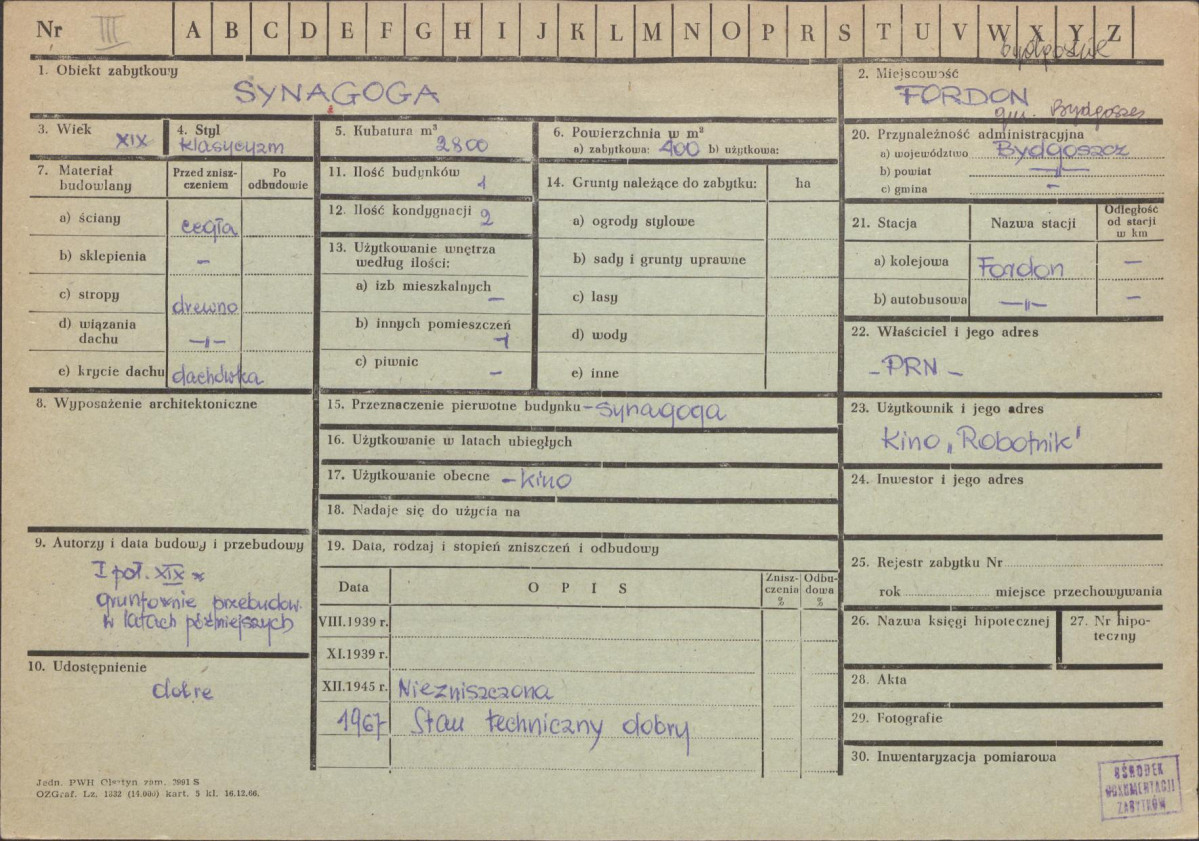 Nr III A B C D E F G H I J K L M N O P R S T U V W X Y Z
bydgoskie
1. Obiekt zabytkowy
SYNAGOGA
2. Miejscowość
FORDON
gm. Bydgoszcz
3. Wiek XIX
4. Styl
klasycyzm
5. Kubatura m³
2800
6. Powierzchnia w m²
a) zabytkowa: 400 b) użytkowa:
7. Materiał budowlany
Przed zniszczeniem
Po odbudowie
a) ściany cegła
b) sklepienia –
c) stropy drewno
d) wiązania dachu –"–
e) krycie dachu dachówka
8. Wyposażenie architektoniczne
9. Autorzy i data budowy i przebudowy
I poł. XIX
gruntownie przebudow.
w latach późniejszych
10. Udostępnienie
dobre
11. Ilość budynków
1
12. Ilość kondygnacji 2
13. Użytkowanie wnętrza
według ilości:
a) izb mieszkalnych
–
b) innych pomieszczeń
1
c) piwnic –
14. Grunty należące do zabytku: ha
a) ogrody stylowe
b) sady i grunty uprawne
c) lasy
d) wody
e) inne
15. Przeznaczenie pierwotne budynku – synagoga
16. Użytkowanie w latach ubiegłych
17. Użytkowanie obecne – kino
18. Nadaje się do użycia na
19. Data, rodzaj i stopień zniszczeń i odbudowy
Data O P I S Zniszczenia % Odbudowa %
VIII.1939 r.
XI.1939 r.
XII.1945 r. Niezniszczona
1967 Stan techniczny dobry
20. Przynależność administracyjna
a) województwo Bydgoszcz
b) powiat –"–
c) gmina –
21. Stacja Nazwa stacji Odległość od stacji w km
a) kolejowa Fordon –
b) autobusowa –"– –
22. Właściciel i jego adres
– PRN –
23. Użytkownik i jego adres
Kino „Robotnik"
24. Inwestor i jego adres
25. Rejestr zabytku Nr
rok miejsce przechowywania
26. Nazwa księgi hipotecznej
27. Nr hipoteczny
28. Akta
29. Fotografie
30. Inwentaryzacja pomiarowa
OŚRODEK
DOKUMENTACJI
ZABYTKÓW
Jedn. PWH Olsztyn zam. 2991 S
OZGraf. Lz. 1332 (14.000) kart. 5 kl. 16.12.66.